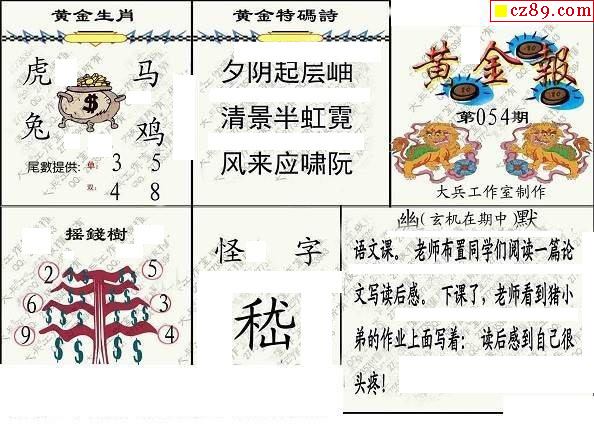 cz89.com
黄金生肖
虎 马
兔 鸡
尾數提供: 单: 3 5
双: 4 8
黄金特碼詩
夕阴起层岫
清景半虹霓
风来应啸阮
黄金報
第054期
大兵工作室制作
摇錢樹
2 5
6 3
9 4
怪 字
嵇
幽(玄机在期中)默
语文课。 老师布置同学们阅读一篇论
文写读后感。 下课了，老师看到猪小
弟的作业上面写着： 读后感到自己很
头疼!